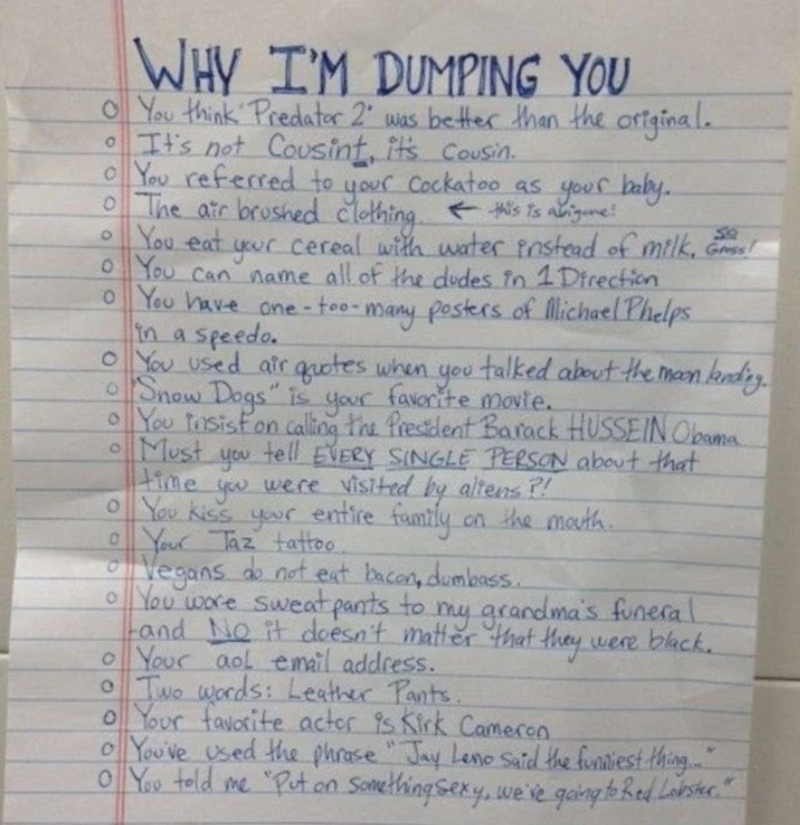 WHY I'M DUMPING YOU
You think "Predator 2" was better than the original.
It's not Cousint, it's cousin.
You referred to your cockatoo as your baby.
The air brushed clothing. ← this is a biggie!
You eat your cereal with water instead of milk. SO Gross!
You can name all of the dudes in 1 Direction
You have one-too-many posters of Michael Phelps
in a speedo.
You used air quotes when you talked about the moon landing.
"Snow Dogs" is your favorite movie.
You insist on calling the President Barack HUSSEIN Obama
Must you tell EVERY SINGLE PERSON about that
time you were visited by aliens?!
You kiss your entire family on the mouth.
Your Taz tattoo.
Vegans do not eat bacon, dumbass.
You wore sweatpants to my grandma's funeral
-and NO it doesn't matter that they were black.
Your aol email address.
Two words: Leather Pants.
Your favorite actor is Kirk Cameron
You've used the phrase "Jay Leno said the funniest thing..."
You told me "Put on something sexy, we're going to Red Lobster."